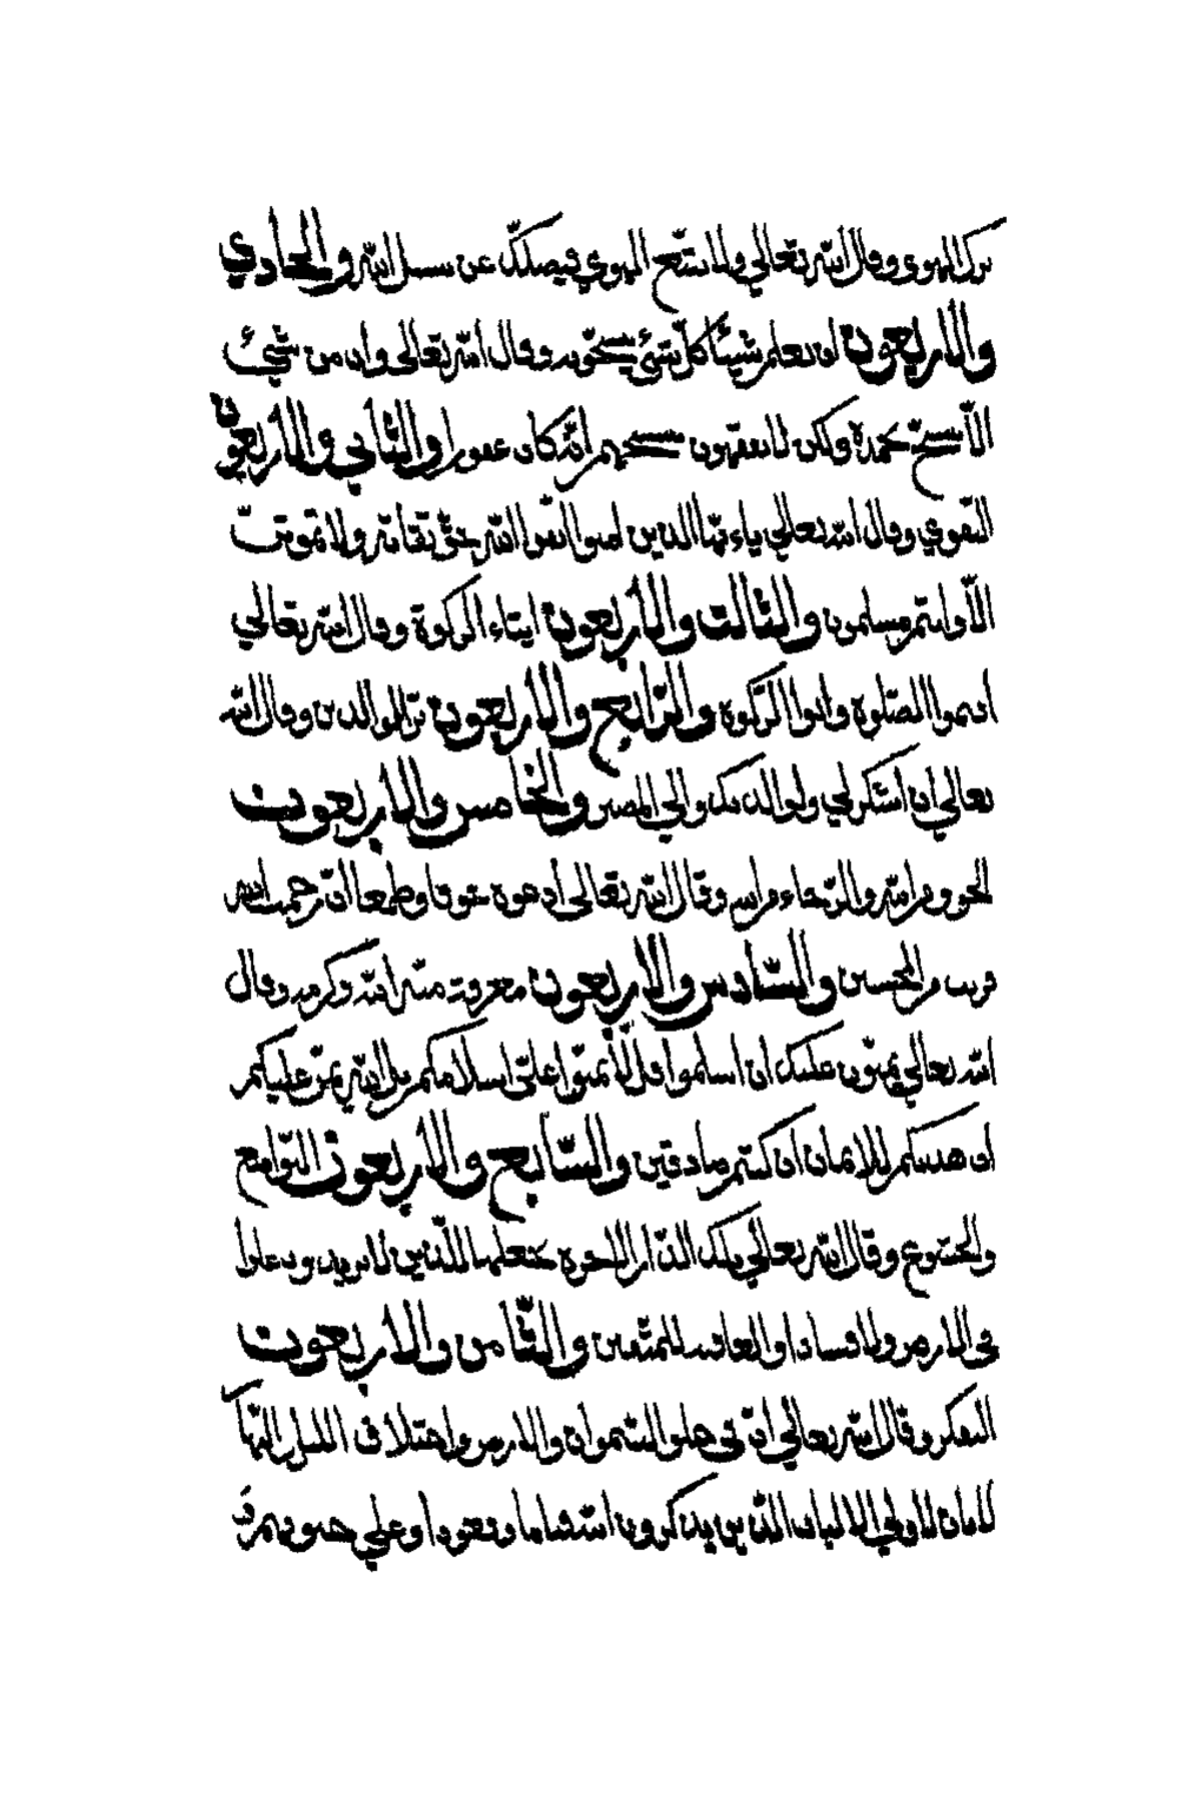 ترك الهوى وقال الله تعالي ولا تتبع الهوي فيضلك عن سبيل الله والحادي
والاربعون ان يعلم شيئا كل شئ يسبحونه وقال الله تعالى وان من شيئ
الا يسبح بحمده ولكن لا تفقهون تسبيحهم انه كان غفورا والثاني والاربعون
التقوي وقال الله تعالي ياءيها الذين امنوا اتقوا الله حق تقاته ولا تموتن
الا وانتم مسلمون والثالث والاربعون ايتاء الزكوة وقال الله تعالي
اقيموا الصلوة واتوا الزكوة والرابع والاربعون بر الوالدين وقال الله
تعالي ان اشكر لي ولوالديك والي المصير والخامس والاربعون
الخوف من الله والرجاء من الله وقال الله تعالى ادعوه خوفا وطمعا ان رحمت الله
قريب من المحسنين والسادس والاربعون معرفة منة الله وكرمه وقال
الله تعالي يمنون عليك ان اسلموا قل لا تمنوا على اسلامكم بل الله يمن عليكم
ان هديكم للايمان ان كنتم صادقين والسابع والاربعون التواضع
والخشوع وقال الله تعالي تلك الدار الاخرة نجعلها للذين لا يريدون علوا
فى الارض ولا فسادا والعاقبة للمتقين والثامن والاربعون
التفكر وقال الله تعالي ان في خلق السموات والارض واختلاف الليل والنها
لايات لاولي الالباب الذين يذكرون الله قياما وقعودا وعلي جنوبهم و